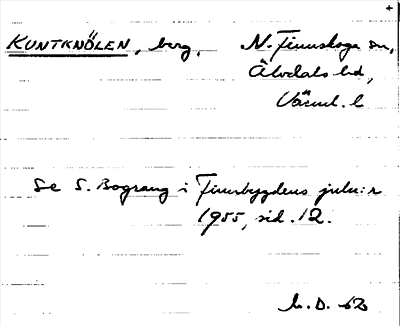 KUNTKNÖLEN, berg, N. Finnskoga sn,
Älvdals hd,
Värml. l
Se S. Bograng i Finnbygdens julnr
1955, sid. 12.
L. D. 62